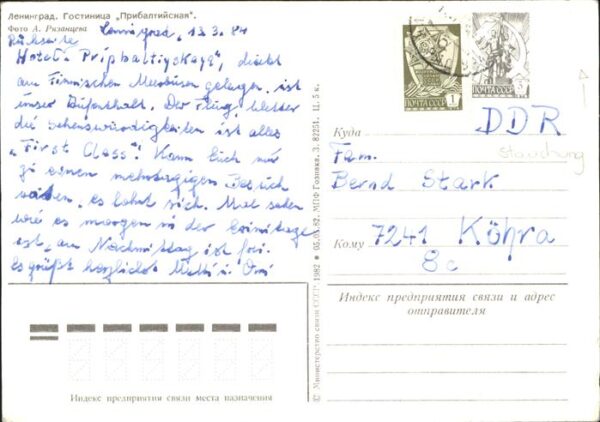 Ленинград. Гостиница „Прибалтийская".
Фото А. Рязанцева
Leningrad, 13.3.84
Rückseite
Hotel „Pribaltiyskaya", direkt
am Finnischen Meerbusen gelegen, ist
unser Aufenthalt. Der Flug, Wetter
die Sehenswürdigkeiten ist alles
„First Class". Kann Euch nur
zu einem mehrtägigen Besuch
raten, es lohnt sich. Mal sehen
wie es morgen in der Ermitage
ist, am Nachmittag ist frei.
Es grüßt herzlichst Mutti u. Omi
ПОЧТА СССР 1
ПОЧТА СССР
Куда
DDR
Fam.
Bernd Stark
Кому
7241 Köhra
8c
Индекс предприятия связи и адрес
отправителя
Индекс предприятия связи места назначения
© Министерство связи СССР, 1982 ● 05.05.82. МПФ Гознака. З. 82251. Ц. 5 к.